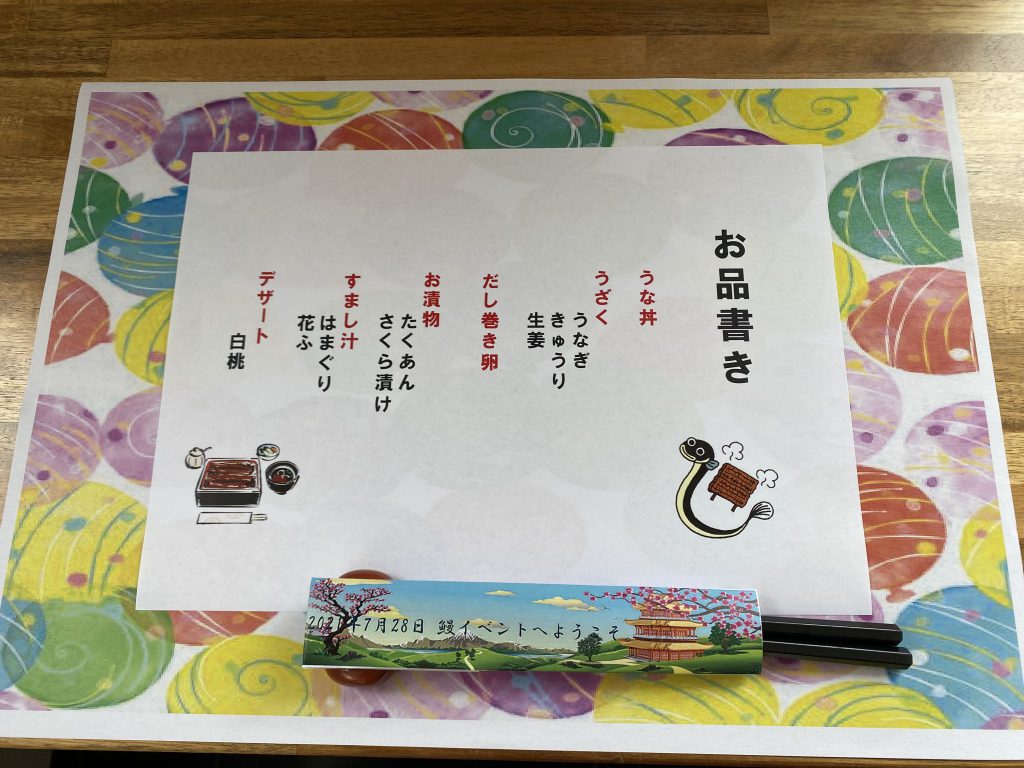 お品書き
うな丼
うざく
うなぎ
きゅうり
生姜
だし巻き卵
お漬物
たくあん
さくら漬け
すまし汁
はまぐり
花ふ
デザート
白桃
7月28日 鰻イベントへようこそ